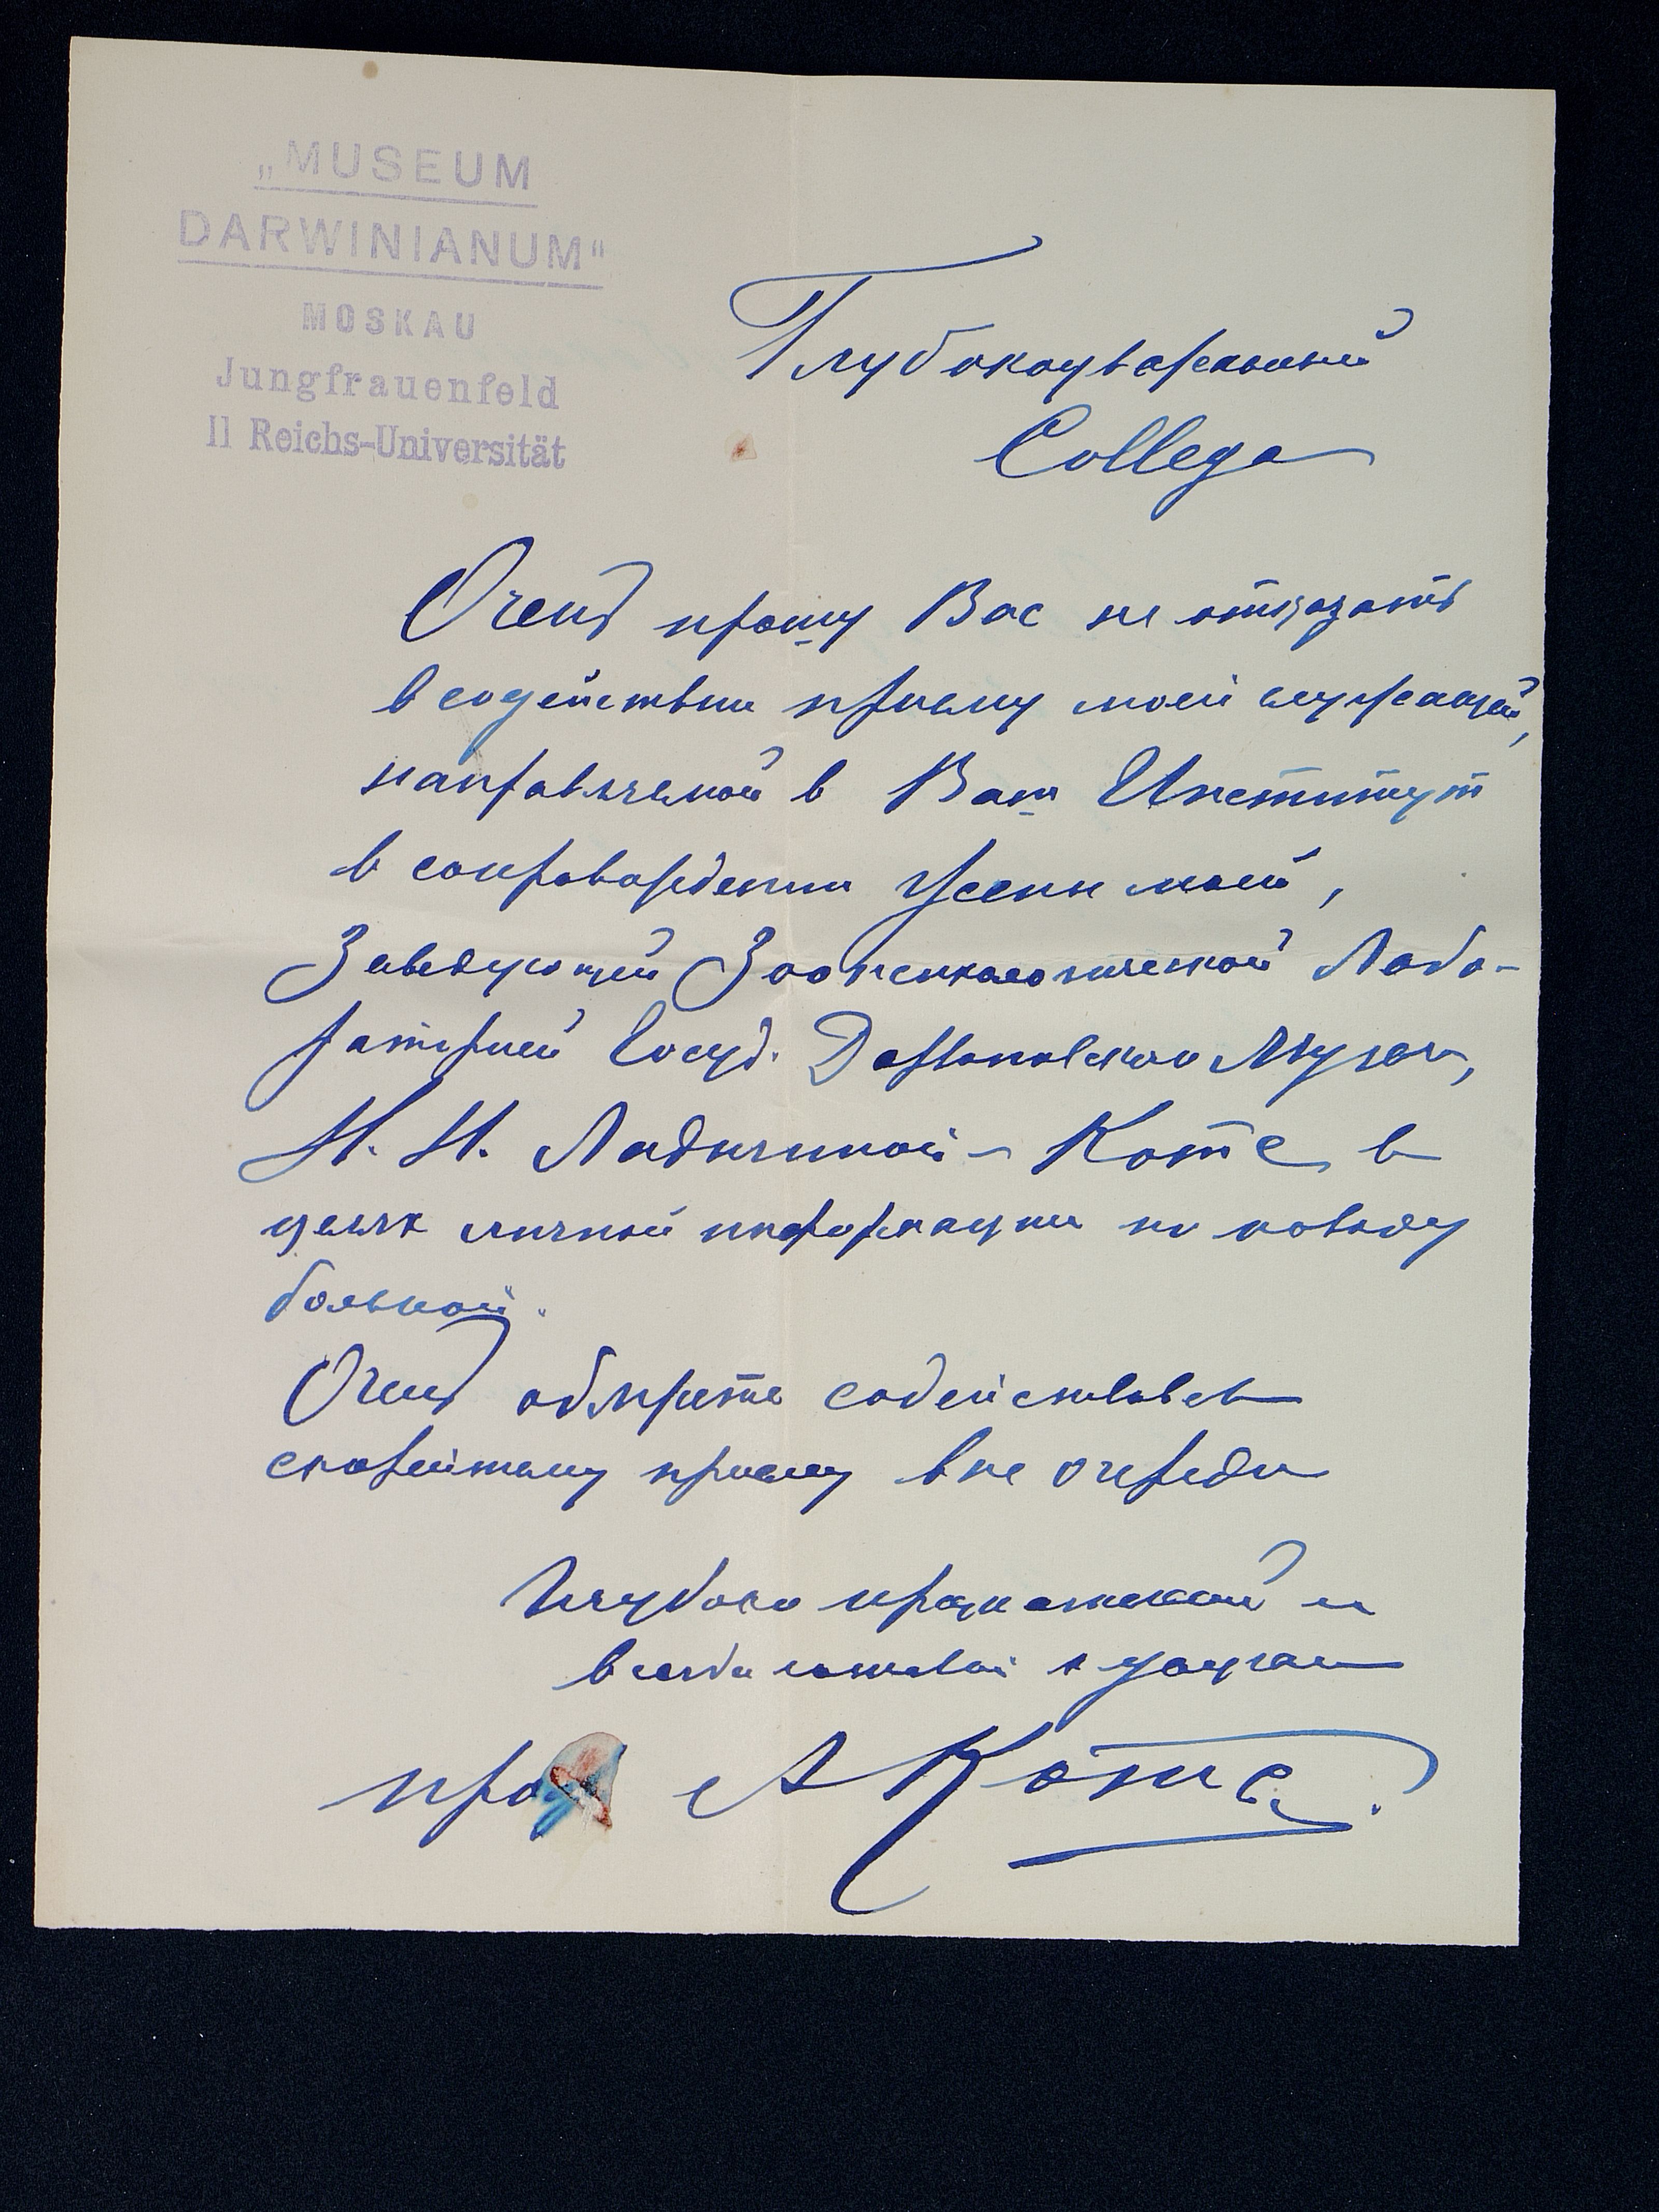 „MUSEUM
DARWINIANUM"
MOSKAU
Jungfrauenfeld
II Reichs-Universität
Глубокоуважаемый
Collega
Очень прошу Вас не отказать
в содействии приему моей служащей,
направляемой в Ваш Институт
в сопровождении жены моей,
Заведующей Зоопсихологической Лабо-
раторией Госуд. Дарвиновского Музея,
Н. Н. Ладыгиной-Котс, в
целях личной информации по поводу
больной.
Очень обяжете содействием
скорейшему приему вне очереди
Глубоко признательный и
всегда готовый к услугам
проф А Котс.